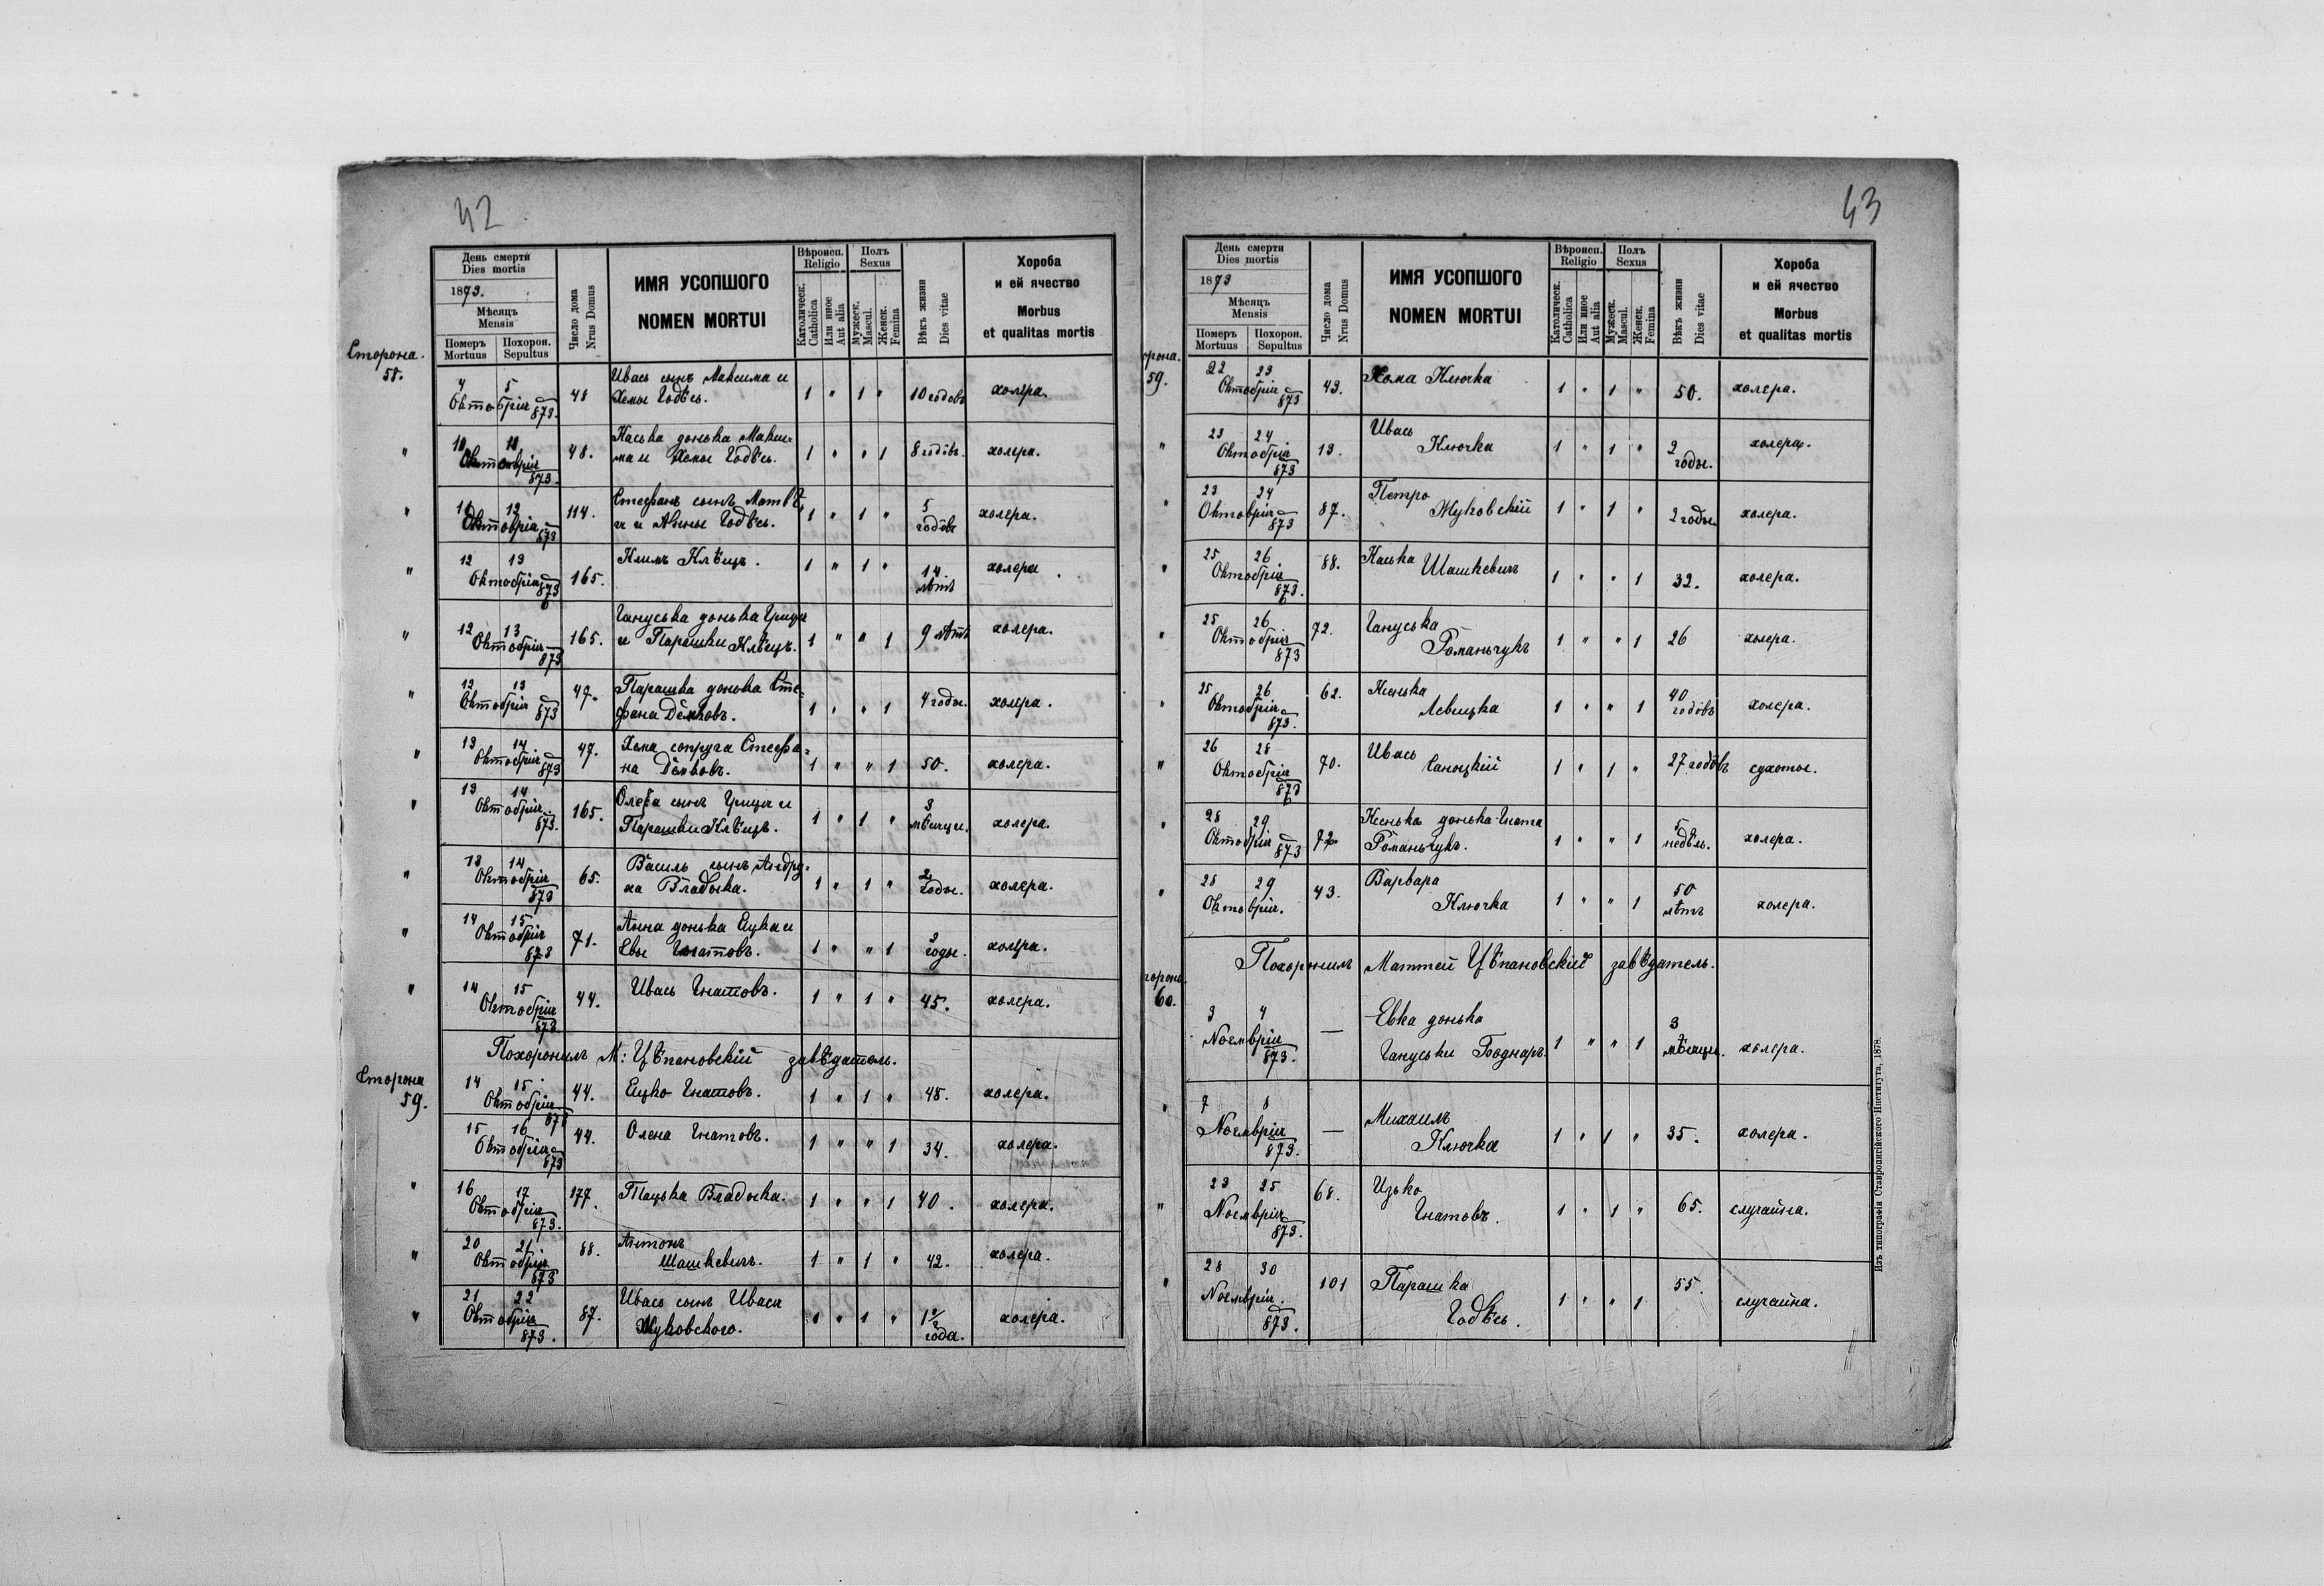 42
День смерти
Dies mortis
1873.
Мѣсяцъ
Mensis
Померъ Mortuus
Похорон. Sepultus
Число дома
Nrus Domus
ИМЯ УСОПШОГО
NOMEN MORTUI
Вѣроисп.
Religio
Католическ.
Catholica
Или иное
Aut alia
Полъ
Sexus
Мужеск.
Mascul.
Женск.
Femina
Вѣкъ жизни
Dies vitae
Хороба
и ей ячество
Morbus
et qualitas mortis
Сторона.
58.
4 5 Октобрія 873. 48 Ивась сынъ Максима и
Хемы Годѣсь. 1 " 1 " 10 годовъ холера.
" 10 11 Октоврія 873. 48. Каська донька Макси-
ма и Хемы Годѣсь. 1 " " 1 8 годôвъ. холера.
" 11 12 Октоврія 873 114. Стефанъ сынъ Матвѣ,
я и Анны Годѣсь. 1 " 1 " 5 годôвъ холера.
" 12 13 Октобрія 873 165. Климъ Клѣщъ. 1 " 1 " 14 лѣтъ холера.
" 12 13 Октобрія 873 165. Гануська донька Гриця
и Парашки Клѣщъ. 1 " " 1 9 лѣтъ холера.
" 12 13 Октобрія 873 47. Парашка донька Сте-
фана Дêмковъ. 1 " " 1 4 годы. холера.
" 13 14 Октобрія 873 47. Хема супруга Стефа-
на Дêмковъ. 1 " " 1 50. холера.
" 13 14 Октобрія 873. 165. Олекса сынъ Гриця и
Парашки Клѣщъ. 1 " 1 " 3 мѣсяцы. холера.
" 13 14 Октобрія 873 65. Василь сынъ Андру-
ха Владыка. 1 " 1 " 2 годы. холера.
" 14 15 Октобрія 873 71. Анна донька Яцка и
Евы Гнатовъ. 1 " " 1 3 годы. холера.
" 14 15 Октобрія 873 44. Ивась Гнатовъ. 1 " 1 " 45. холера.
Похоронилъ М: Цѣпановскій завѣдатель.
Сторона
59.
14 15 Октобрія 873 44. Яцко Гнатовъ. 1 " 1 " 48. холера.
15 16 Октобрія 873 44. Олена Гнатовъ. 1 " " 1 34. холера.
" 16 17 Октобрія 873. 177. Пацька Владыка. 1 " " 1 40. холера.
" 20 21 Октобрія 873 88. Антонъ
Шашкевичъ. 1 " 1 " 42. холера.
" 21 22 Октобрія 873. 87. Ивась сынъ Ивася
Жуковского. 1 " 1 " 1½ года. холера.
43
День смерти
Dies mortis
1873
Мѣсяцъ
Mensis
Померъ Mortuus
Похорон. Sepultus
Число дома
Nrus Domus
ИМЯ УСОПШОГО
NOMEN MORTUI
Вѣроисп.
Religio
Католическ.
Catholica
Или иное
Aut alia
Полъ
Sexus
Мужеск.
Mascul.
Женск.
Femina
Вѣкъ жизни
Dies vitae
Хороба
и ей ячество
Morbus
et qualitas mortis
орона.
59.
22 23 Октобрія 873 43. Хома Ключка 1 " 1 " 50. холера.
" 23 24 Октобрія 873 13. Ивась
Ключка 1 " 1 " 2 годы. холера.
" 23 24 Октоврія 873 87. Петро
Жуковскій 1 " 1 " 2 годы. холера.
" 25 26 Октобрія 873. 88. Каська Шашкевичъ 1 " " 1 32. холера.
" 25 26 Октобрія 873 72. Гануська
Романьчукъ 1 " " 1 26 холера.
" 25 26 Октобрія 873. 62. Ксенька
Левицка 1 " " 1 40 годôвъ холера.
" 26 28 Октобрія 873 70. Ивась
Саноцкій 1 " 1 " 27 годôвъ сухоты.
" 28 29 Октобрія 873 72 Ксенька донька Гната
Романьчукъ. 1 " " 1 5 недѣль. холера.
" 28 29 Октоврія. 43. Варвара
Ключка 1 " " 1 50 лѣтъ холера.
Похоронилъ Маттей Цѣпановскій завѣдатель.
торона
60.
3 4 Ноемврія 873. — Евка донька
Гануськи Боднаръ. 1 " " 1 3 мѣсяцы. холера.
" 7 8 Ноемврія 873. — Михаилъ
Ключка 1 " 1 " 35. холера.
" 23 25 Ноемврія 873. 68. Ицько
Гнатовъ. 1 " 1 " 65. случайна.
" 28 30 Ноемврія. 873. 101 Парашка
Годѣсь. 1 " " 1 55. случайна.
Изъ типографіи Ставропигійского Института, 1878.